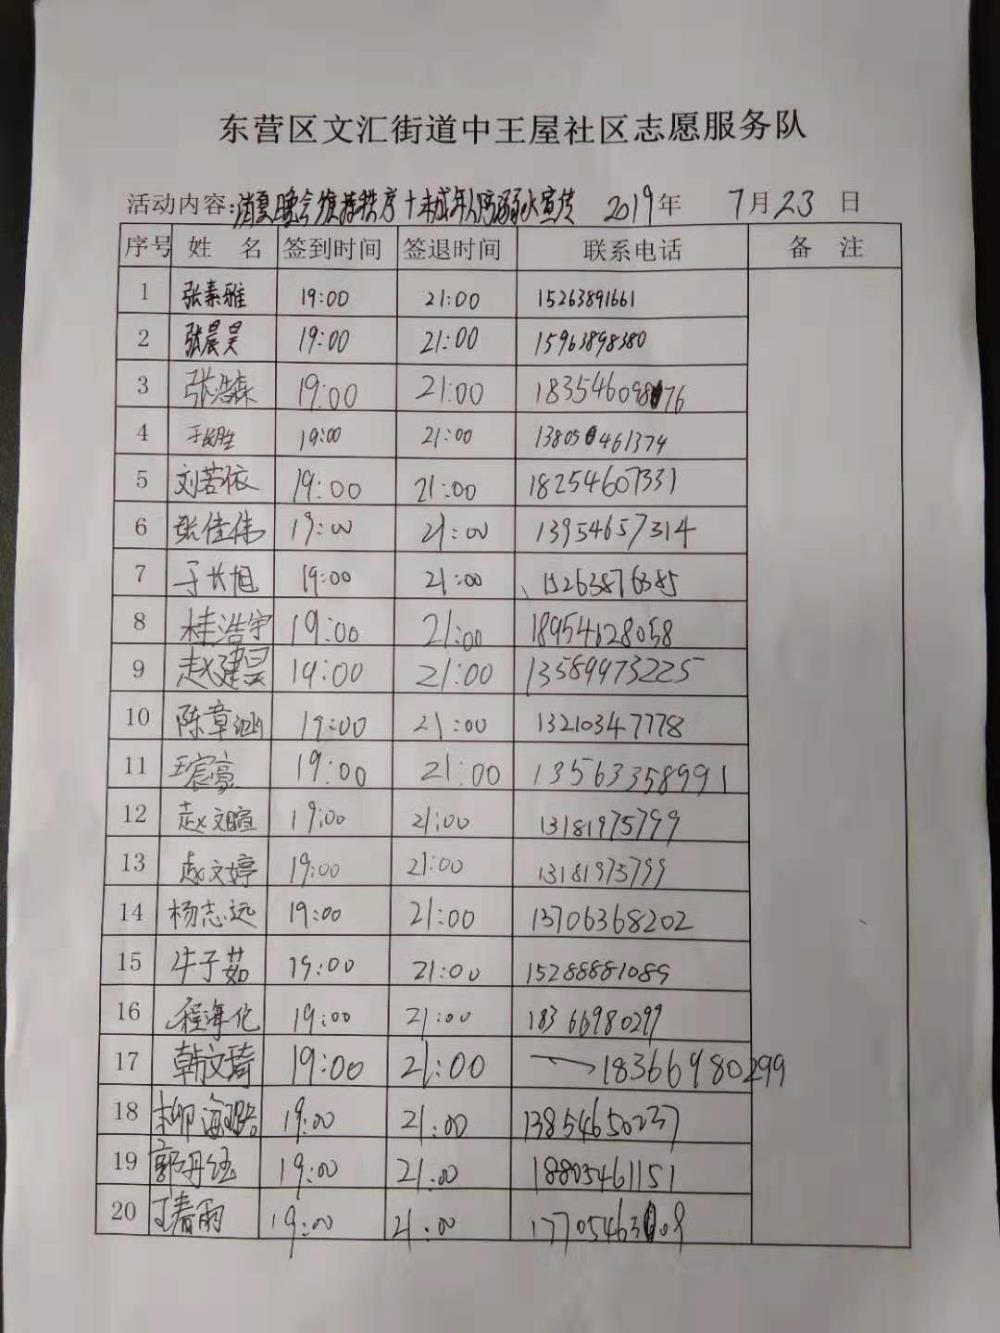 东营区文汇街道中王屋社区志愿服务队
活动内容:消夏晚会维持秩序十未成年人防溺水宣传 2019年 7月23日
序号 姓 名 签到时间 签退时间 联系电话 备 注
1 张素雅 19:00 21:00 15263891661
2 张晨昊 19:00 21:00 15963898380
3 张浩森 19:00 21:00 183546098 76
4 于长胜 19:00 21:00 13805 461374
5 刘若依 19:00 21:00 18254607331
6 张佳伟 19:00 21:00 13954657314
7 于长旭 19:00 21:00 15263876385
8 桂浩宇 19:00 21:00 18954628058
9 赵建昊 19:00 21:00 13589973225
10 陈章涵 19:00 21:00 13210347778
11 王宸豪 19:00 21:00 13563358991
12 赵文暄 19:00 21:00 13181975799
13 赵文婷 19:00 21:00 13181975799
14 杨志远 19:00 21:00 13706368202
15 牛子茹 19:00 21:00 15288881089
16 程海伦 19:00 21:00 18366980299
17 韩文琦 19:00 21:00 18366980299
18 柳海璐 19:00 21:00 13854650237
19 郭丹钰 19:00 21:00 18805461151
20 王春雨 19:00 21:00